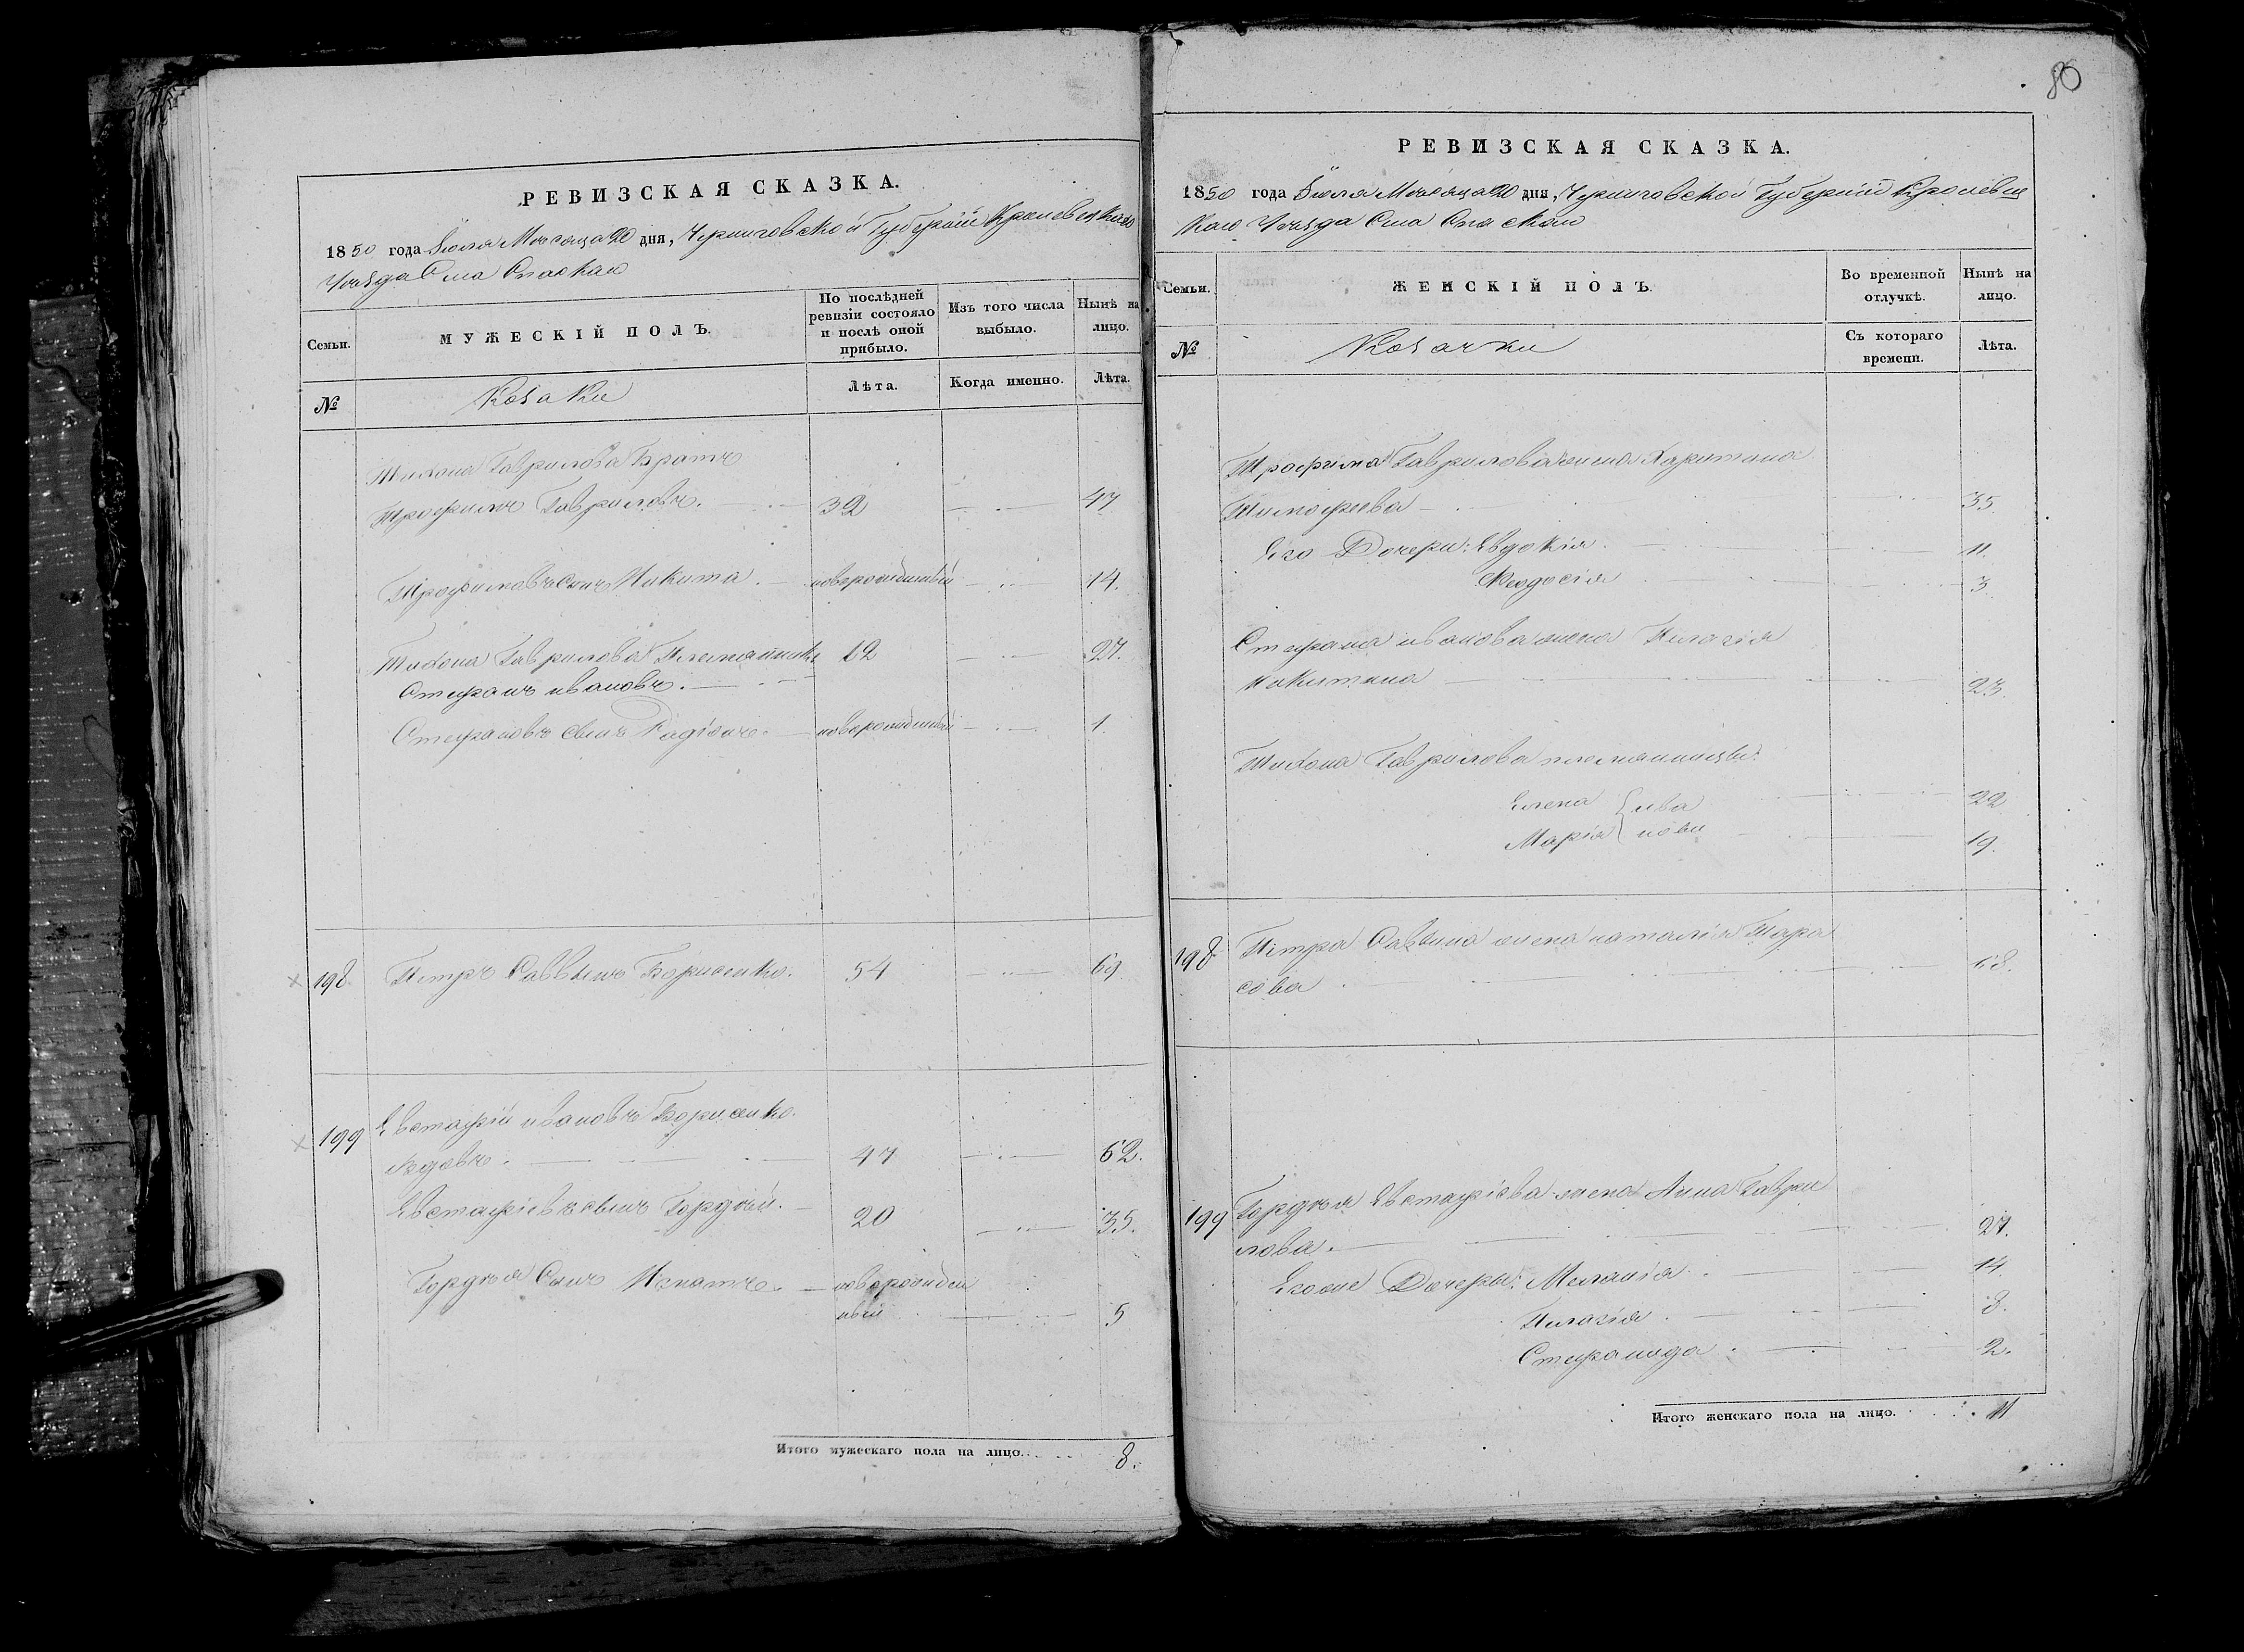 РЕВИЗСКАЯ СКАЗКА.
1850 года Іюля Месяца 20 дня, Черниговской Губерніи Кролевецкаго
Уезда Села Спаскаго
Семьи.
МУЖЕСКІЙ ПОЛЪ.
По послѣдней ревизіи состояло и послѣ оной прибыло.
Изъ того числа выбыло.
Нынѣ на лицо.
№
Козаки
Лѣта.
Когда именно.
Лѣта.
Тихона Гаврилова Братъ
Трофимъ Гавриловъ. 32 47
Трофимовъ сынъ Никита. новорожденный 14.
Тихона Гаврилова Племянникъ 12 27.
Стефанъ ивановъ.
Стефановъ сынъ Радіонъ. новорожденный 1.
198 Петръ Саввинъ Борисенко. 54 69
199 Евстафій ивановъ Борисенко.
вдовъ. 47 62.
Евстафіевъ сынъ Гордѣй. 20 35.
Гордѣя Сынъ Игнатъ. новорожден
ный 5
Итого мужескаго пола на лицо. 8.
80
РЕВИЗСКАЯ СКАЗКА.
1850 года Іюля Месяца 20 дня, Черниговской Губерніи Кролевец
каго Уезда Села Спаскаго
Семьи.
ЖЕНСКІЙ ПОЛЪ.
Во временной отлучкѣ.
Нынѣ на лицо.
№
Козачки
Съ котораго времени.
Лѣта.
Трофима Гаврилова жена Харитина
Тимофеева 35.
Его Дочери: Евдокія. 11.
Феодосія 3
Стефана иванова жена Пелагія
Никитина 23.
Тихона Гаврилова племянницы:
Елена { ива 22
Марія { новы 19.
198 Петра Саввина жена наталія Тара
сова 68.
199 Гордѣя Евстафіева жена Анна Гаври
лова. 27.
Его же Дочеры: Меланія 14
Пелагія. 8.
Стефанида. 2.
Итого женскаго пола на лицо. 11